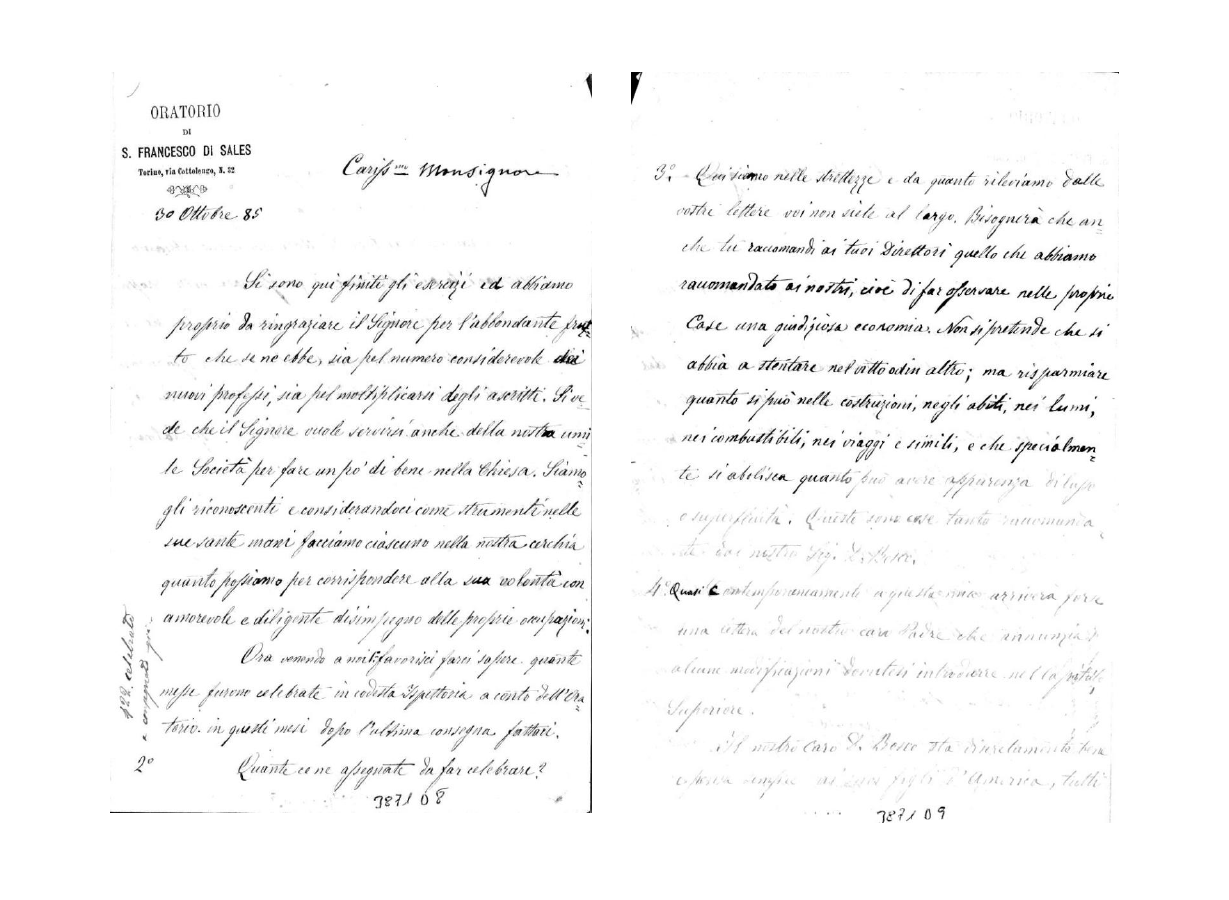 ORATORIO
DI
S. FRANCESCO DI SALES
Torino, via Cottolengo, N. 32
30 Ottobre 85
Cariss.mo Monsignore
Si sono qui finiti gli esercizi ed abbiamo
proprio da ringraziare il Signore per l'abbondante frut-
to che se ne ebbe, sia pel numero considerevole dei
nuovi professi, sia pel moltiplicarsi degli ascritti. Si ve-
de che il Signore vuole servirsi anche della nostra umi-
le Società per fare un po' di bene nella Chiesa. Siamo-
gli riconoscenti e considerandoci come strumenti nelle
sue sante mani facciamo ciascuno nella nostra cerchia
quanto possiamo per corrispondere alla sua volontà con
amorevole e diligente disimpegno delle proprie occupazioni.
Ora venendo a noi: 1º favorisci farci sapere quante
messe furono celebrate in codesta Ispettoria a conto dell'Ora-
torio in questi mesi dopo l'ultima consegna fattaci.
2º Quante ce ne assegnate da far celebrare?
122 celebrate
e consegnate qui
387 1 D 8
3º - Qui siamo nelle strettezze e da quanto rileviamo dalle
vostre lettere voi non siete al largo. Bisognerà che an-
che tu raccomandi ai tuoi Direttori quello che abbiamo
raccomandato ai nostri, cioè di far osservare nelle proprie
Case una giudiziosa economia. Non si pretende che si
abbia a stentare nel vitto od in altro; ma risparmiare
quanto si può nelle costruzioni, negli abiti, nei lumi,
nei combustibili, nei viaggi e simili, e che specialmen-
te si abolisca quanto può avere apparenza di lusso
o superfluità. Queste sono cose tanto raccomanda
te dal nostro Sig. D. Bosco.
4º Quasi Contemporaneamente a questa mia arriverà forse
una lettera del nostro caro Padre che annunzia
alcune modificazioni dovutesi introdurre nel Capitolo
Superiore.
Il nostro caro D. Bosco sta discretamente bene
e pensa sempre ai suoi figli d'America, tutti
387 1 D 9